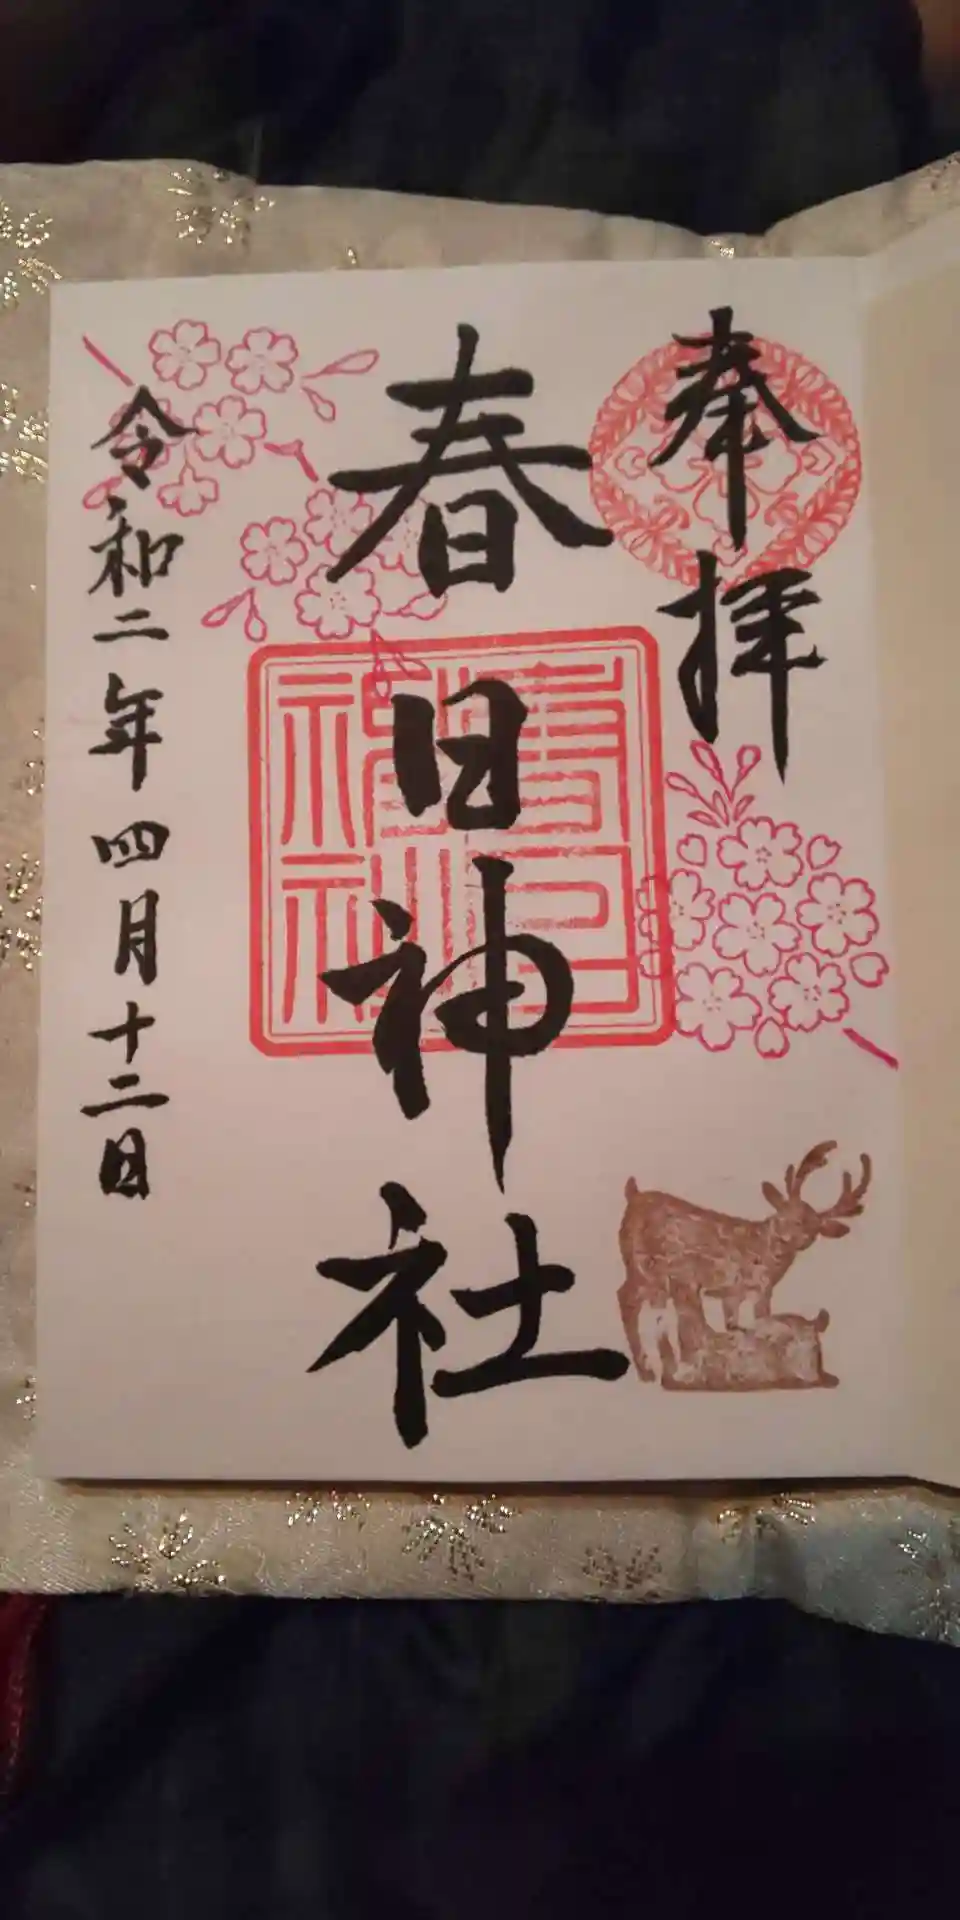 奉拝
春日神社
春日神社
令和二年四月十二日